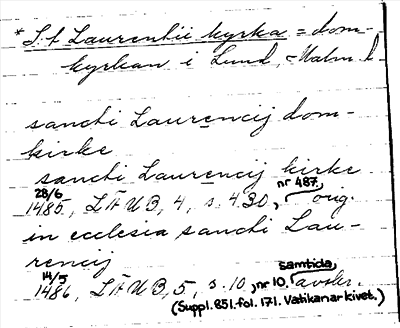 * S:t Laurentii kyrka = dom-
kyrkan i Lund, Malm. l.
sancti Laurencij dom-
kirke
sancti Laurencij kirke
28/6 nr 487.
1485, LÄUB, 4, s. 430, orig.
in ecclesia sancti Lau-
rencij
14/5 samtida
1486, LÄUB, 5, s. 10, nr 10. avskr.
(Suppl. 851. fol. 171. Vatikanarkivet.)